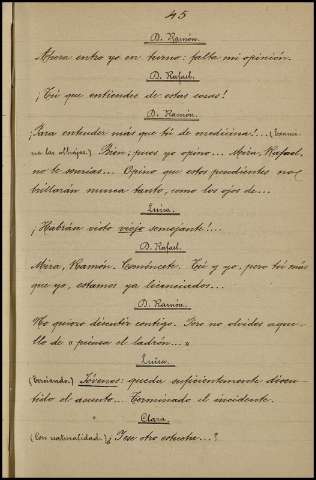 45
D. Ramón.
Ahora entro yo en turno: falta mi opinión.
D. Rafael.
¡Tú que entiendes de estas cosas!
D. Ramón.
¡Para entender más que tú de medicina!... (Exami-
na las alhajas.) Bien; pues yo opino... Mira, Rafael,
no te sonrías... Opino que estos pendientes no
brillarán nunca tanto, como los ojos de...
Luisa.
¡Habrán visto viejo semejante!...
D. Rafael.
Mira, Ramón. Convéncete. Tú y yo, pero tú más
que yo, estamos ya licenciados...
D. Ramón.
No quiero discutir contigo. Pero no olvides aque-
llo de "piensa el ladrón..."
Luisa.
(Terciando.) Jóvenes: queda suficientemente discu-
tido el asunto... Terminado el incidente.
Clara.
(Con naturalidad.) ¿Y ese otro estuche...?